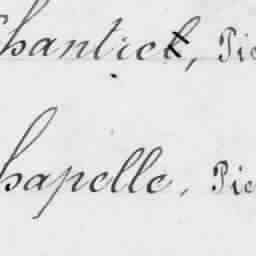 hantiet, Pie
hapelle, Pie